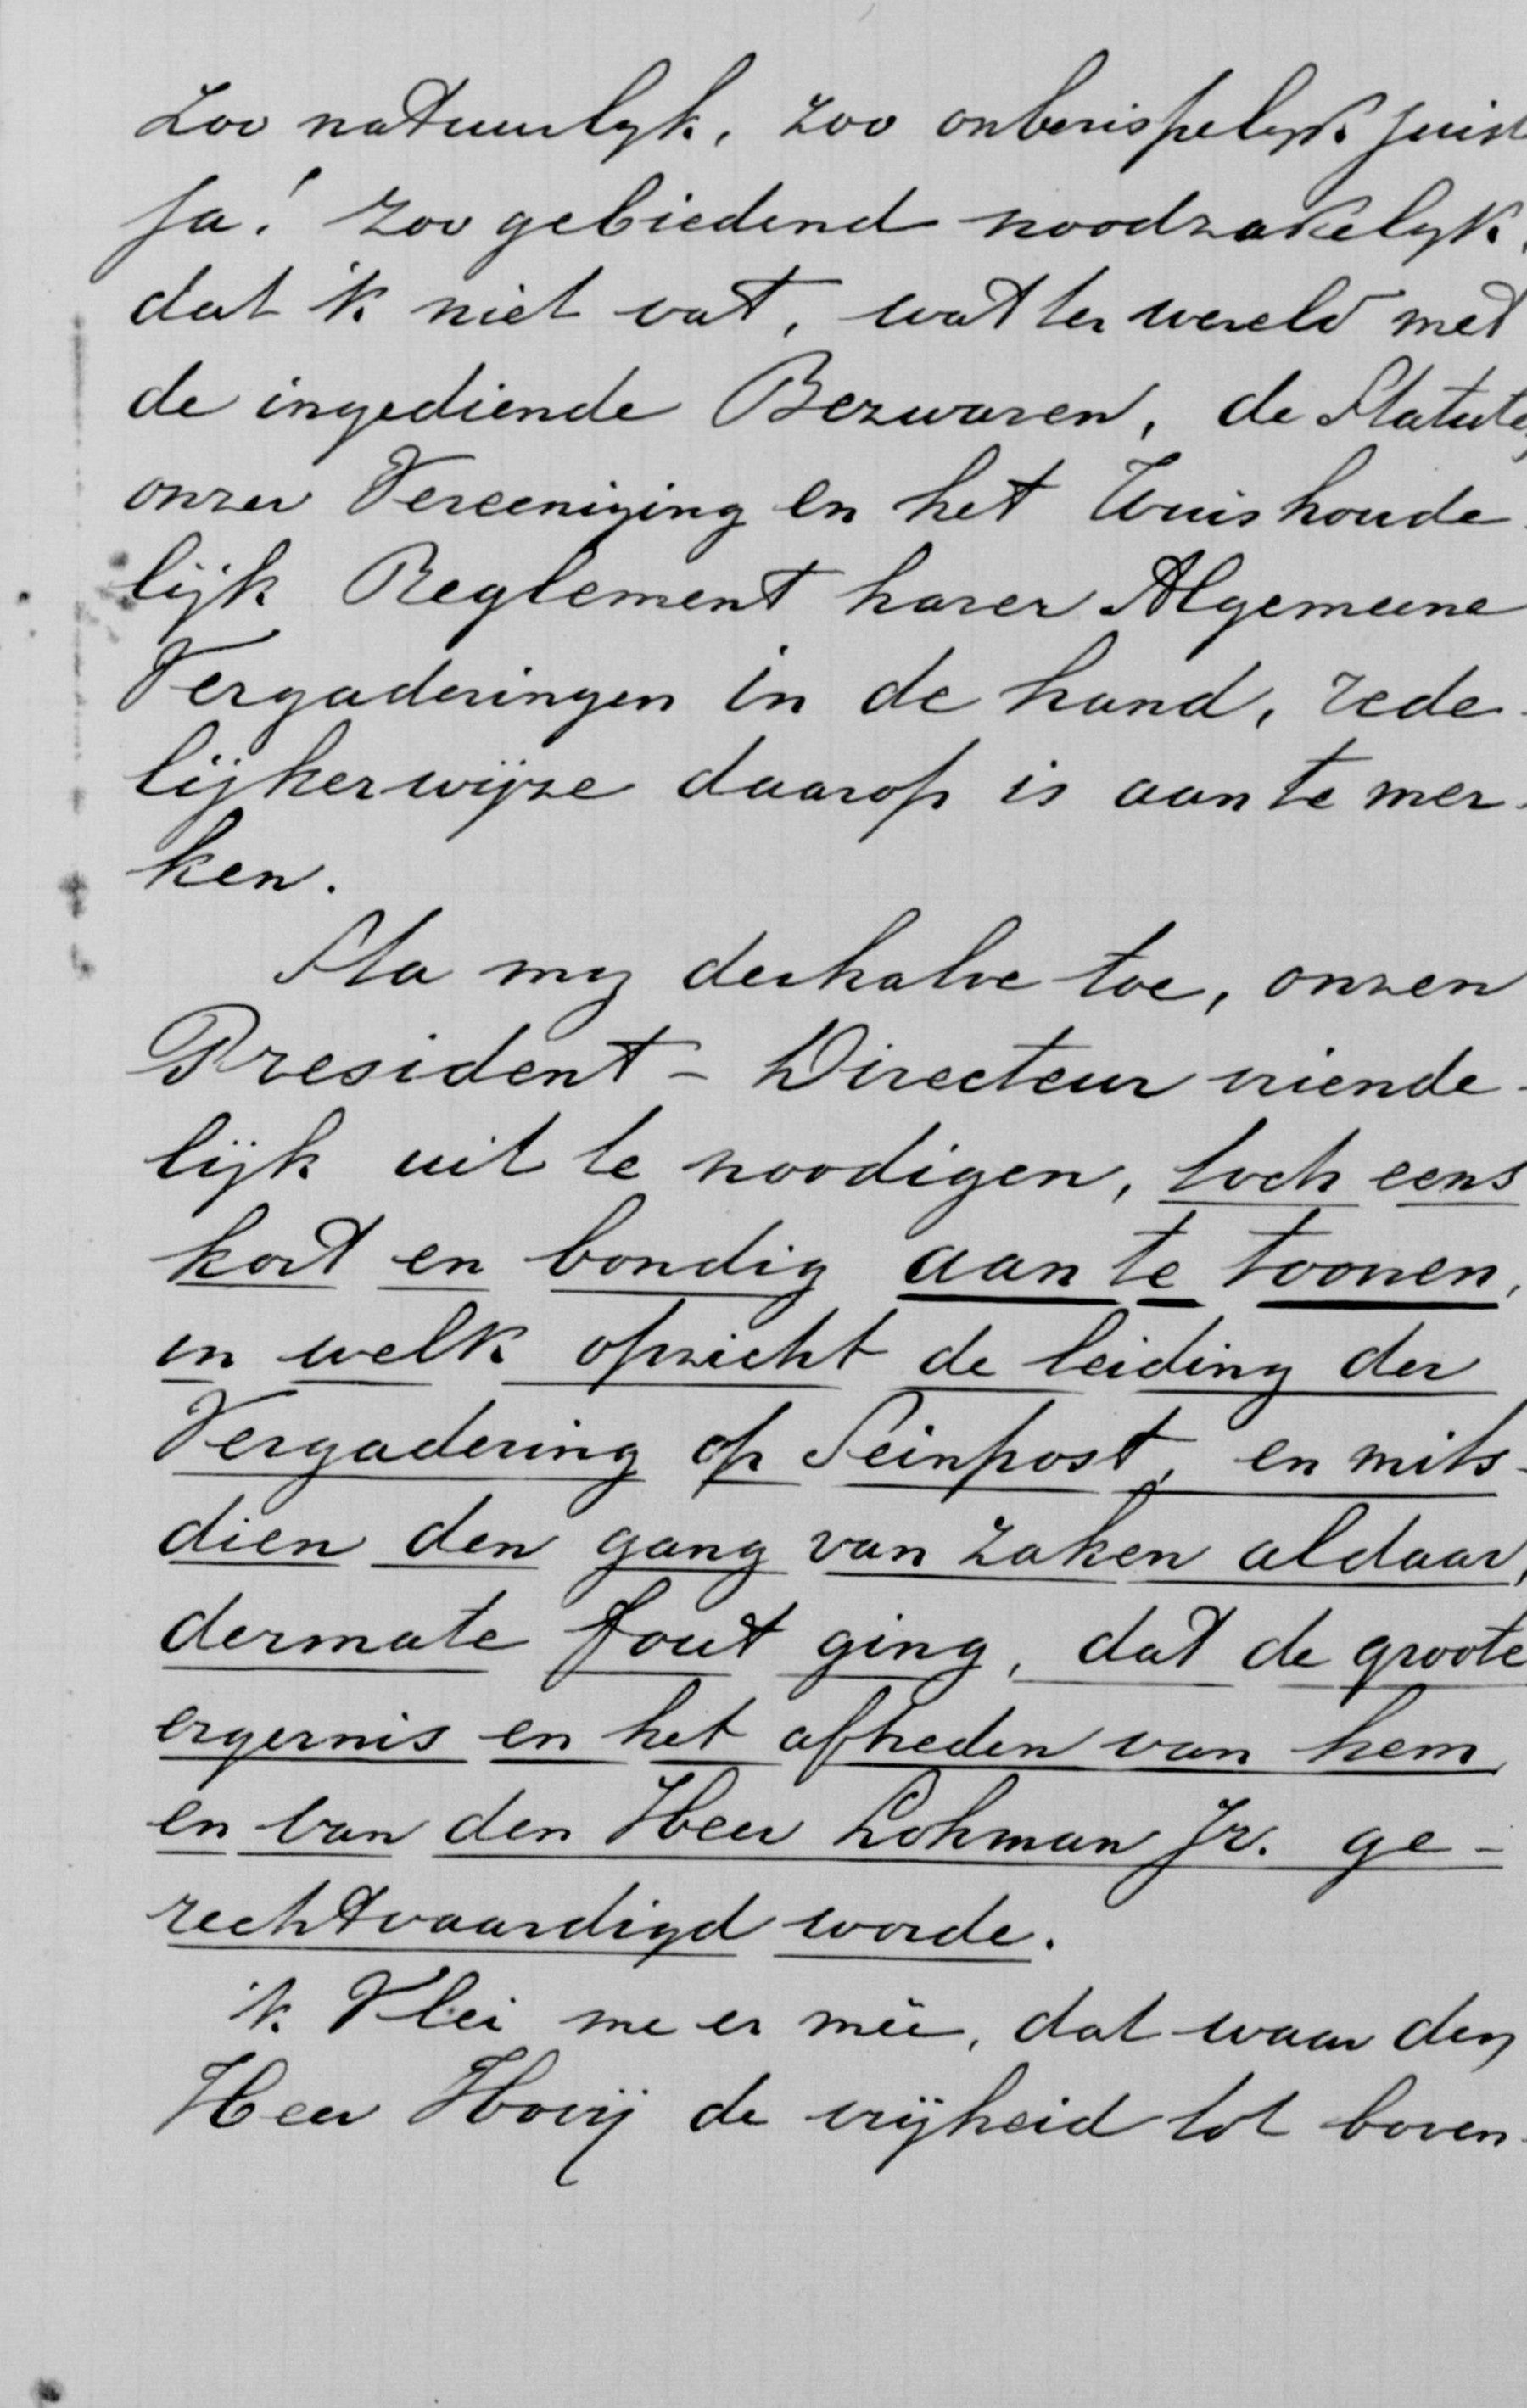 Zoo natuurlyk, zoo onberispelyk juist
ja! zoo gebiedend noodzakelyk,
dat 'k niet vat, wat ter wereld met
de ingediende Bezwaren, de Statuten
onzer Vereeniging en het Huishoude-
lijk Reglement harer Algemeene
Vergaderingen in de hand, rede-
lijkerwijze daarop is aan te mer-
ken.
Sta my derhalve toe, onzen
President - Directeur vriende-
lijk uit te noodigen, toch eens
kort en bondig aan te toonen,
in welk opzicht de leiding der
Vergadering op Seinpost, en mits-
dien den gang van zaken aldaar,
dermate fout ging, dat de groote
ergernis en het aftreden van hem
en van den Heer Lohman Jr. ge-
rechtvaardigd worde.
'k Vlei me er meê, dat waar den
Heer Hovij de vrijheid tot boven-